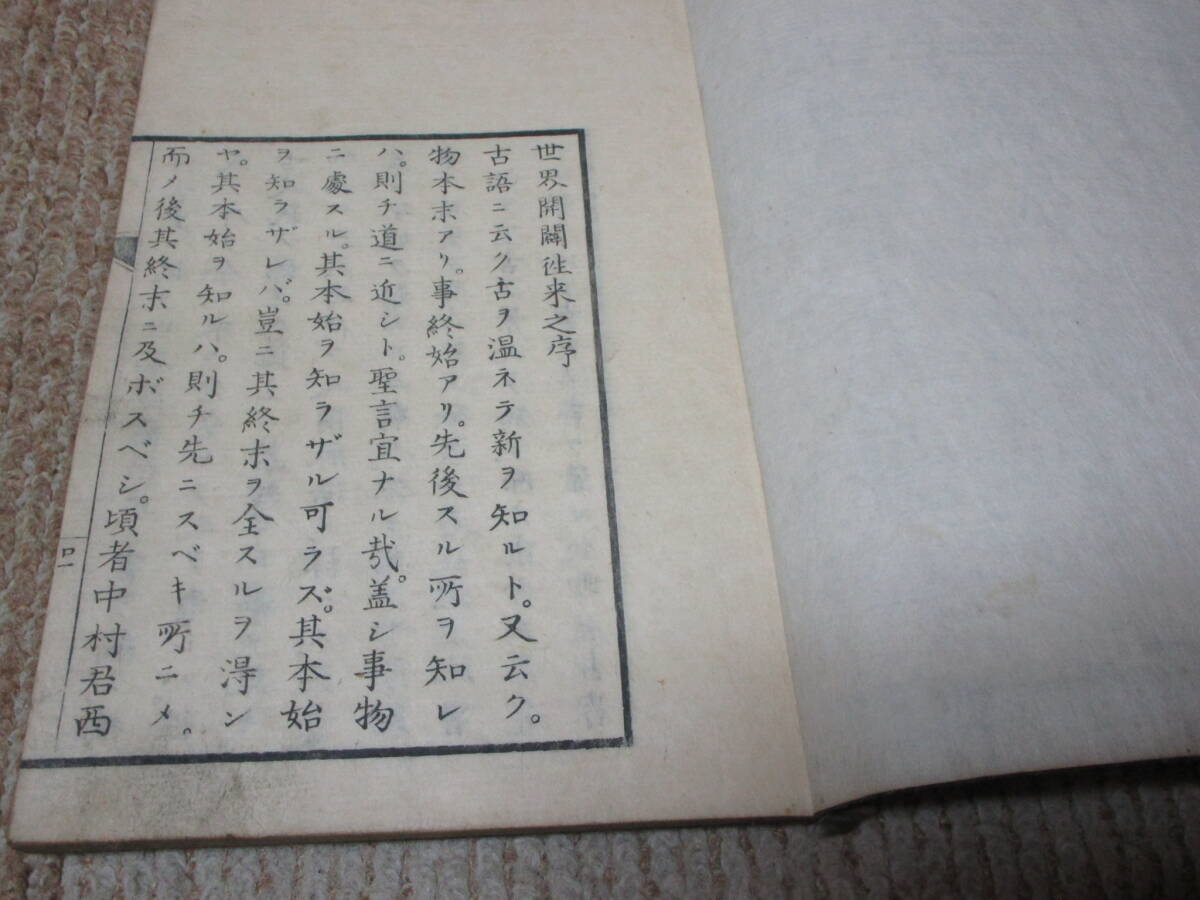 世界開闢徃来之序
古語ニ云ク古ヲ温ネテ新ヲ知ルト。又云ク。
物本末アリ。事終始アリ。先後スル所ヲ知レ
ハ。則チ道ニ近シト。聖言宜ナル哉。蓋シ事物
ニ處スル。其本始ヲ知ラザル可ラズ。其本始
ヲ知ラザレバ。豈ニ其終末ヲ全スルヲ得ン
ヤ。其本始ヲ知ルハ。則チ先ニスベキ所ニメ。
而メ後其終末ニ及ボスベシ。頃者中村君西
口一